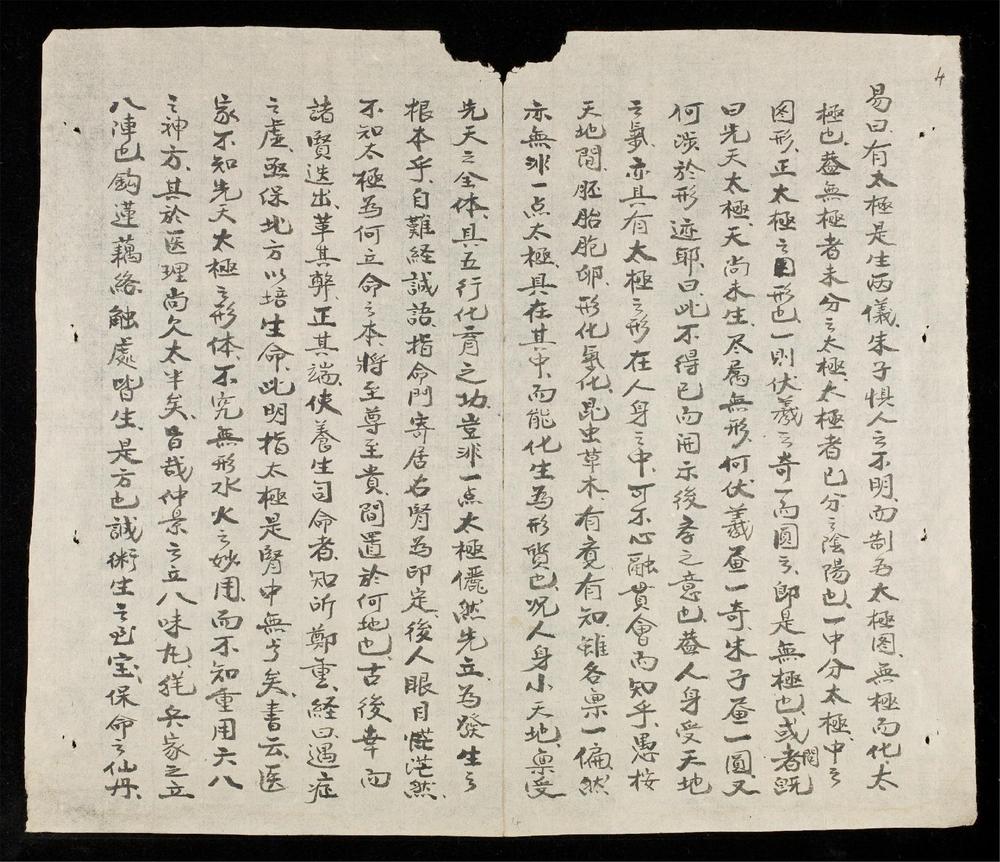 4
易曰、有太極是生兩儀、朱子惧人之不明而制為太極图、無極而化太
極也、蓋無極者未分之太極、太極者已分之陰陽也、一中分太極、中之
图形、正太極之形也、一則伏羲之奇一而圓之、即是無極也、或者問既
曰先天太極、天尚未生、尽属無形、何伏羲畫一奇、朱子畫一圓、又
何涉於形迹耶、曰此不得已而開示後李之意也、蓋人身受天地
之氣、亦具有太極之形在人身之中、可不心融貫會而知乎、愚桉
天地間、胚胎胞卵、形化氣化、昆虫草木、有有知、雖各禀一偏、然
亦無非一点太極、具在其中、而能化生為形質也、况人身小天地、禀受
先天之全体、具五行化育之功、豈非一点太極儼然先立、為發生之
根本乎、自難経誠語、指命門寄居右腎為印定、後人眼目茫然、
不知太極為何立命之本、將至尊至貴、間置於何地也、古後幸而
諸賢迭出、革其弊、正其端、使養生司命者、知所鄭重、経曰、遇症
之虚、亟保北方以培生命、此明指太極是腎中無矣、書云、医
家不知先天太極之形体、不究無形水火之妙用、而不知重用六八
之神方、其於医理尚欠太半矣、旨哉仲景之立八味丸、犹兵家之立
八陣也、鈎蓮藕絡、触處皆生、是方也、誠術生之宝、保命之仙丹、